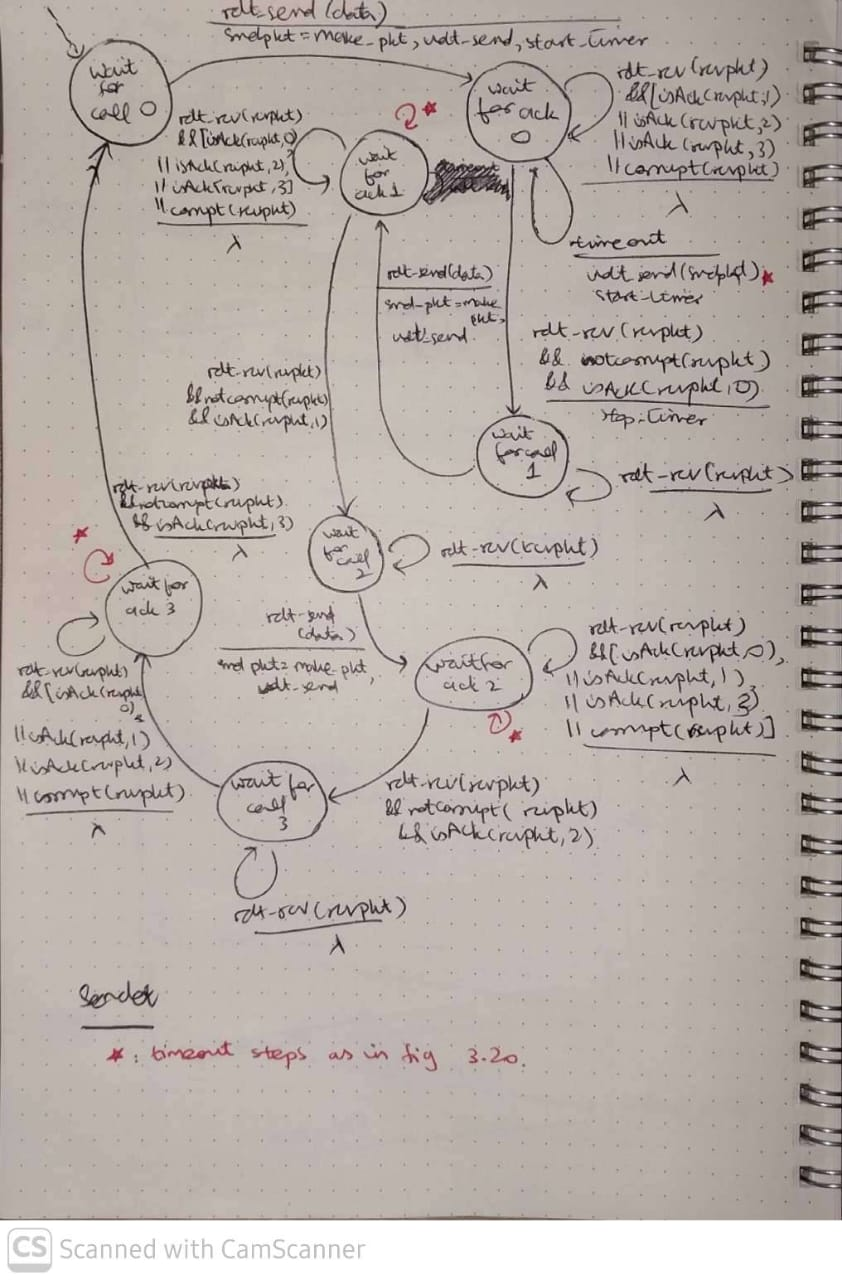 rdt-send (data)
sndpkt = make_pkt, udt-send, start_timer
wait
for
call 0
wait
for ack
0
rdt-rcv (rcvpkt)
&& [isAck(rcvpkt, 1)
|| isAck (rcvpkt, 2)
|| isAck (rcvpkt, 3)
|| corrupt (rcvpkt)
λ
timeout
udt_send (sndpkt) *
start-timer
rdt-rcv (rcvpkt)
&& [isAck(rcvpkt, 0)
|| isAck (rcvpkt, 2),
|| isAck (rcvpkt, 3]
|| corrupt (rcvpkt)
λ
*
wait
for
ack 1
rdt-send (data)
snd-pkt = make
pkt,
udt-send
rdt-rcv (rcvpkt)
&& notcorrupt (rcvpkt)
&& isAck (rcvpkt, 0)
stop-timer
rdt-rcv (rcvpkt)
&& notcorrupt (rcvpkt)
&& isAck (rcvpkt, 1)
wait
for call
1
rdt-rcv (rcvpkt)
λ
rdt-rcv (rcvpkt)
&& notcorrupt (rcvpkt)
&& isAck (rcvpkt, 3)
λ
wait
for
call
2
rdt-rcv (rcvpkt)
λ
*
wait for
ack 3
rdt-send
(data)
snd pkt = make_pkt,
udt-send
wait for
ack 2
*
rdt-rcv (rcvpkt)
&& [isAck (rcvpkt, 0),
|| isAck (rcvpkt, 1)
|| isAck (rcvpkt, 3)
|| corrupt (rcvpkt)]
λ
rdt-rcv (rcvpkt)
&& [isAck (rcvpkt,
0)
|| isAck (rcvpkt, 1)
|| isAck (rcvpkt, 2)
|| corrupt (rcvpkt)
λ
wait for
call
3
rdt-rcv (rcvpkt)
&& notcorrupt ( rcvpkt)
&& isAck (rcvpkt, 2)
rdt-rcv (rcvpkt)
λ
Sender
* : timeout steps as in fig 3.20.
CS Scanned with CamScanner